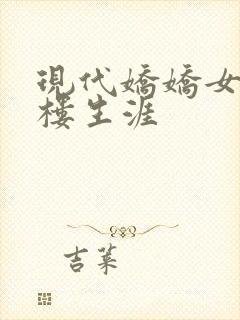 現代嬌嬌女
樓生涯
吉菓